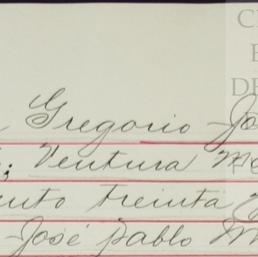 Gregorio Jo
; Ventura Ma
ento treinta y
José Pablo M